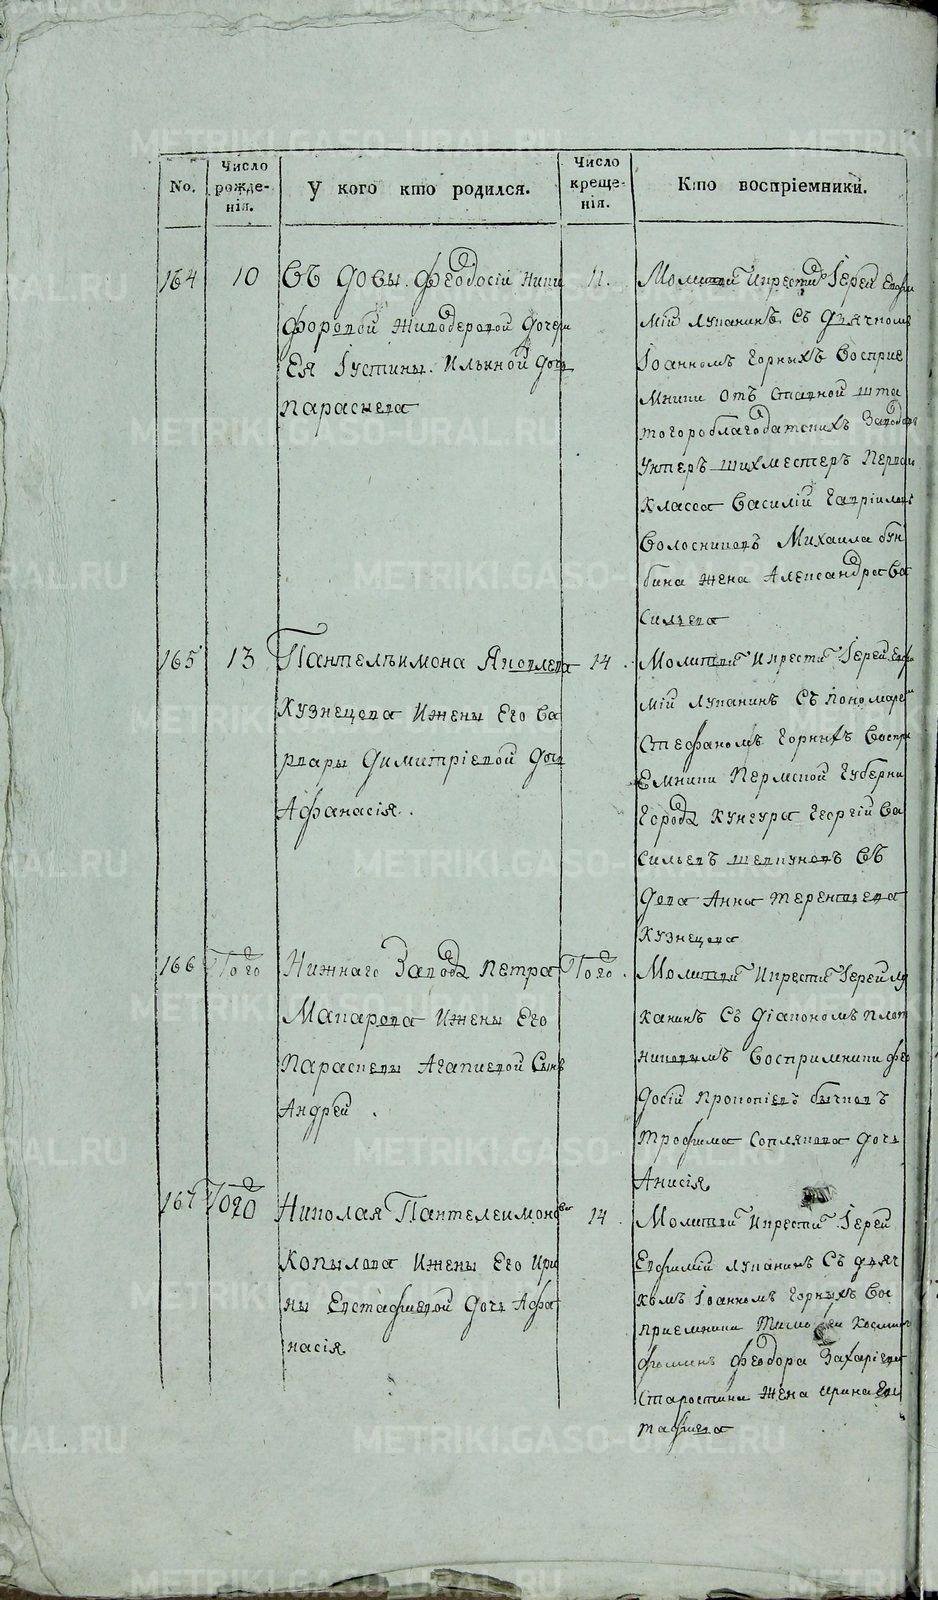 No.
Число рожде-нія.
У кого кто родился.
Число креще-нія.
Кто воспріемники.
164
10
Въ Довы Феодосіи Ники
форовой Живодеровой дочери
Ея Іустины Ильиной дочь
Параскева
11.
Молит Икрести Іерей Евфи
мій Лупанинъ Съ дьячкомъ
Іоанномъ Горныхъ Восприе
мники Отъ Ставной шта
тогороблагодатскихъ Заводовъ
Унтеръ шихместеръ Перваго
Класса Василій Гавріиловъ
Волосниковъ Михаила Бун
бина Жена Александра Ва
сильева
165
13
Пантелеимона Яковлева
Кузнецова Ижены Его Ва
рвары Димитріевой дочь
Афанасія.
14.
Молитви Икрести Іерей Евфи
мій Лупанинъ Съ Пономаремъ
Стефаномъ Горныхъ Воспри
Емники Пермской Губерни
Города Кунгура Георгій Ва
сильевъ Шевкуновъ Въ
дова Анна Терентьева
Кузнецова
166
Того
Нижнаго Завода Петра
Макарова Ижены Его
Параскевы Агапиевой Сынъ
Андрей
Того.
Молитви Икрести Іерей Лу
канинъ Съ Діакономъ Плот
никовымъ Воспримники Фео
досій Прокопіевъ Бычковъ
Трофима Соплякова дочь
Анисія
167
Того
Николая Пантелеимонова
Копылова Ижены Его Ири
ны Евстафиевой дочь Афа
насія
14.
Молитви Икрести Іерей
Евфимій Лупанинъ Съ дьяч
комъ Іоанномъ Горныхъ Вос
приемники Космина
Фоминъ Феодора Захаріева
Старостина Жена Ирина Евс
тафиева
METRIKI.GASO-URAL.RU